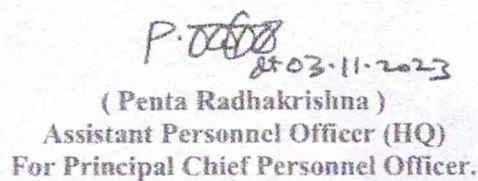 P.
dt 03.11.2023
( Penta Radhakrishna )
Assistant Personnel Officer (HQ)
For Principal Chief Personnel Officer.